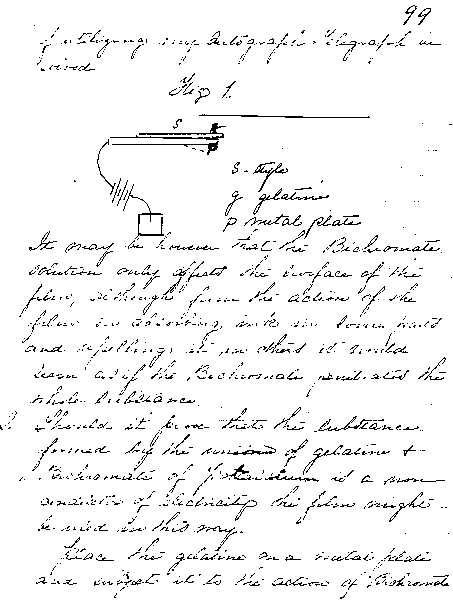 99
of utilizing my Autograph Telegraph in
Fig 1.
S
g
p
S - style
g gelatine
p metal plate
It may be however that the Bichromate
solution only affects the surface of the
film, although from the action of the
film in absorbing ink in some parts
and repelling it in others it would
seem as if the Bichromate penetrates the
whole substance
2. Should it prove that the substance
formed by the union of gelatine +
Bichromate of Potassium is a non
conductor of electricity the film might
be used in this way.
Place the gelatine on a metal plate
and subject it to the action of Bichromate